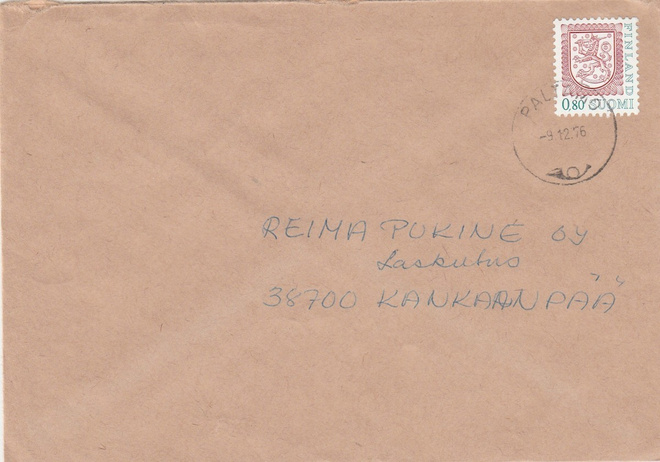 FINLAND
0,80 SUOMI
-9.12.76
REIMA PUKINE OY
Laskutus
38700 KANKAANPÄÄ